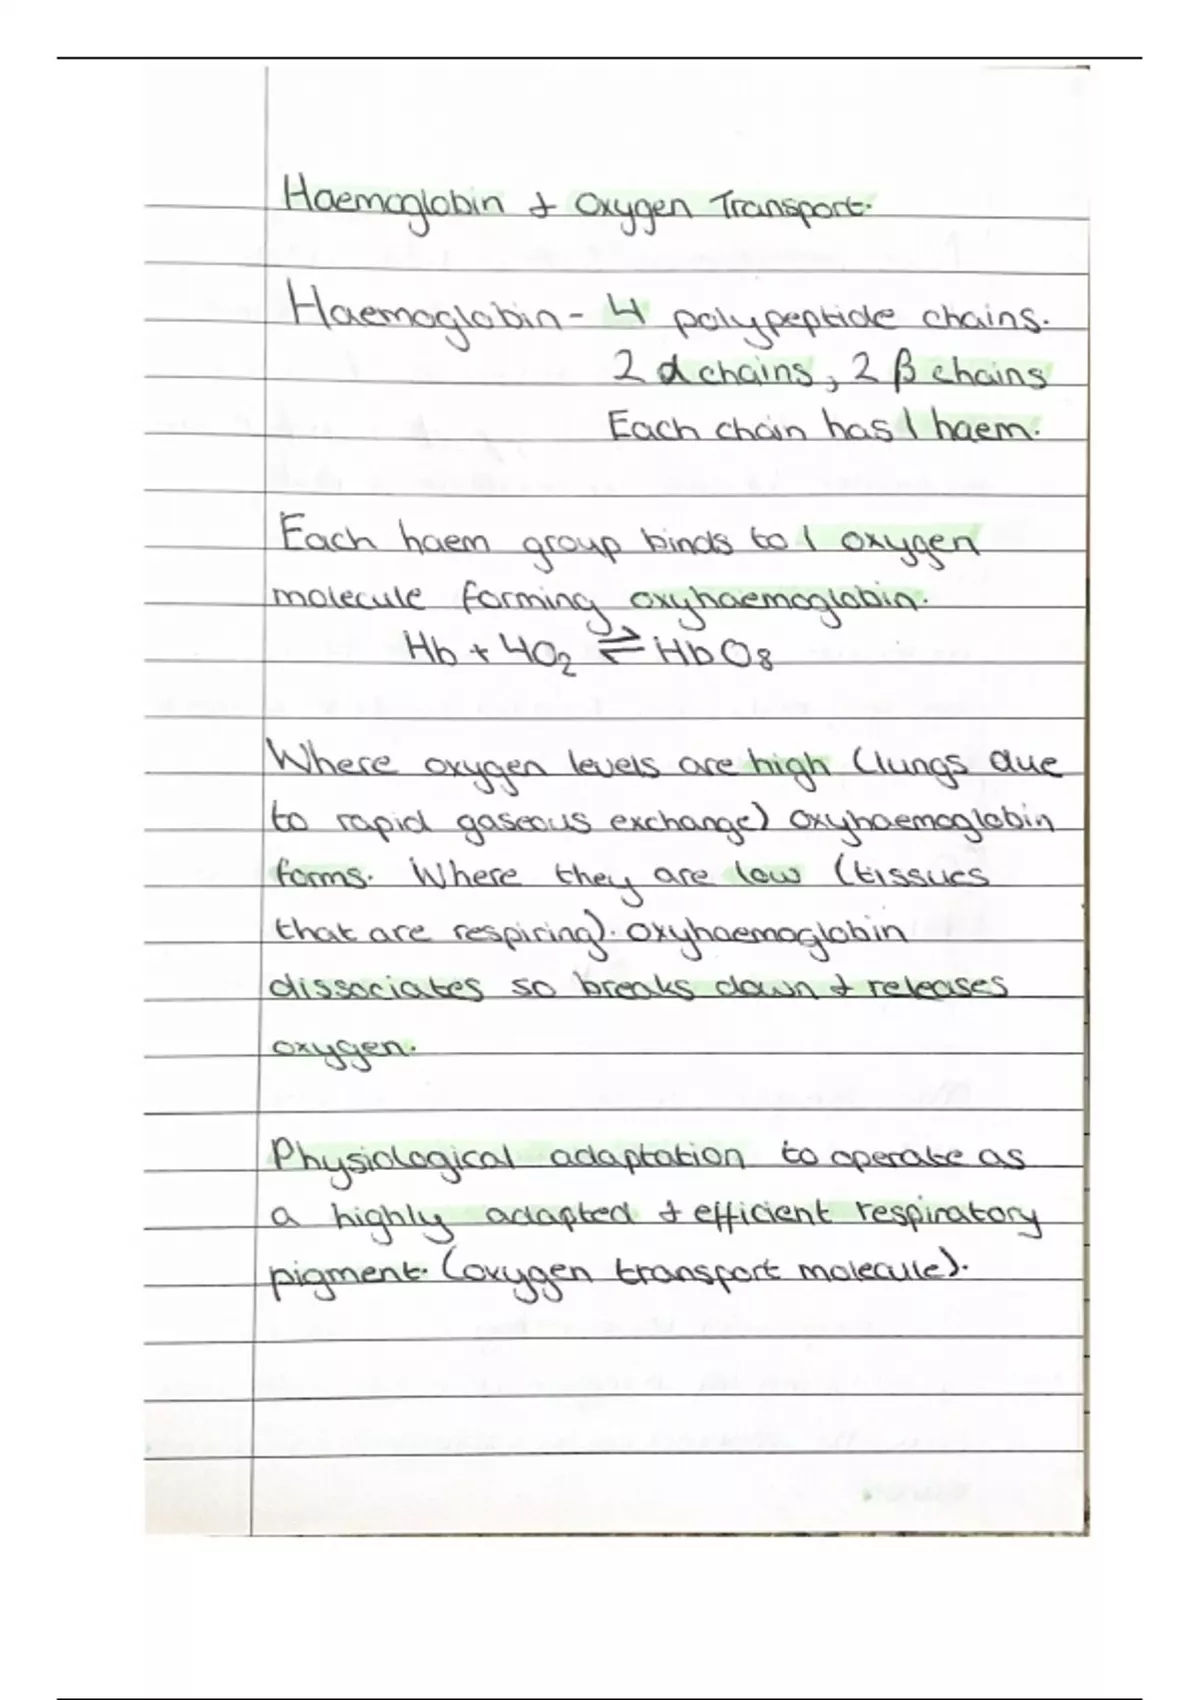 Haemoglobin + Oxygen Transport.
Haemoglobin - 4 polypeptide chains.
2 α chains, 2 β chains
Each chain has 1 haem.
Each haem group binds to 1 oxygen
molecule forming oxyhaemoglobin.
Hb + 4O₂ ⇌ HbO₈
Where oxygen levels are high (lungs due
to rapid gaseous exchange) oxyhaemoglobin
forms. Where they are low (tissues
that are respiring). oxyhaemoglobin
dissociates so breaks down + releases
oxygen.
Physiological adaptation to operate as
a highly adapted + efficient respiratory
pigment. (oxygen transport molecule).